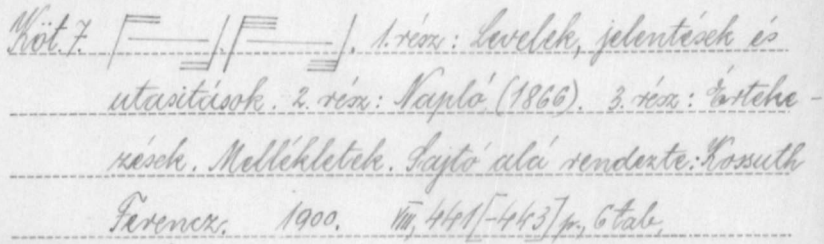 Köt. 7. 1. rész: Levelek, jelentések és
utasitások. 2. rész: Napló, (1866). 3. rész: Érteke-
zések. Mellékletek. Sajtó alá rendezte: Kossuth
Ferencz. 1900. VIII, 441[-443] p., 6 tab.